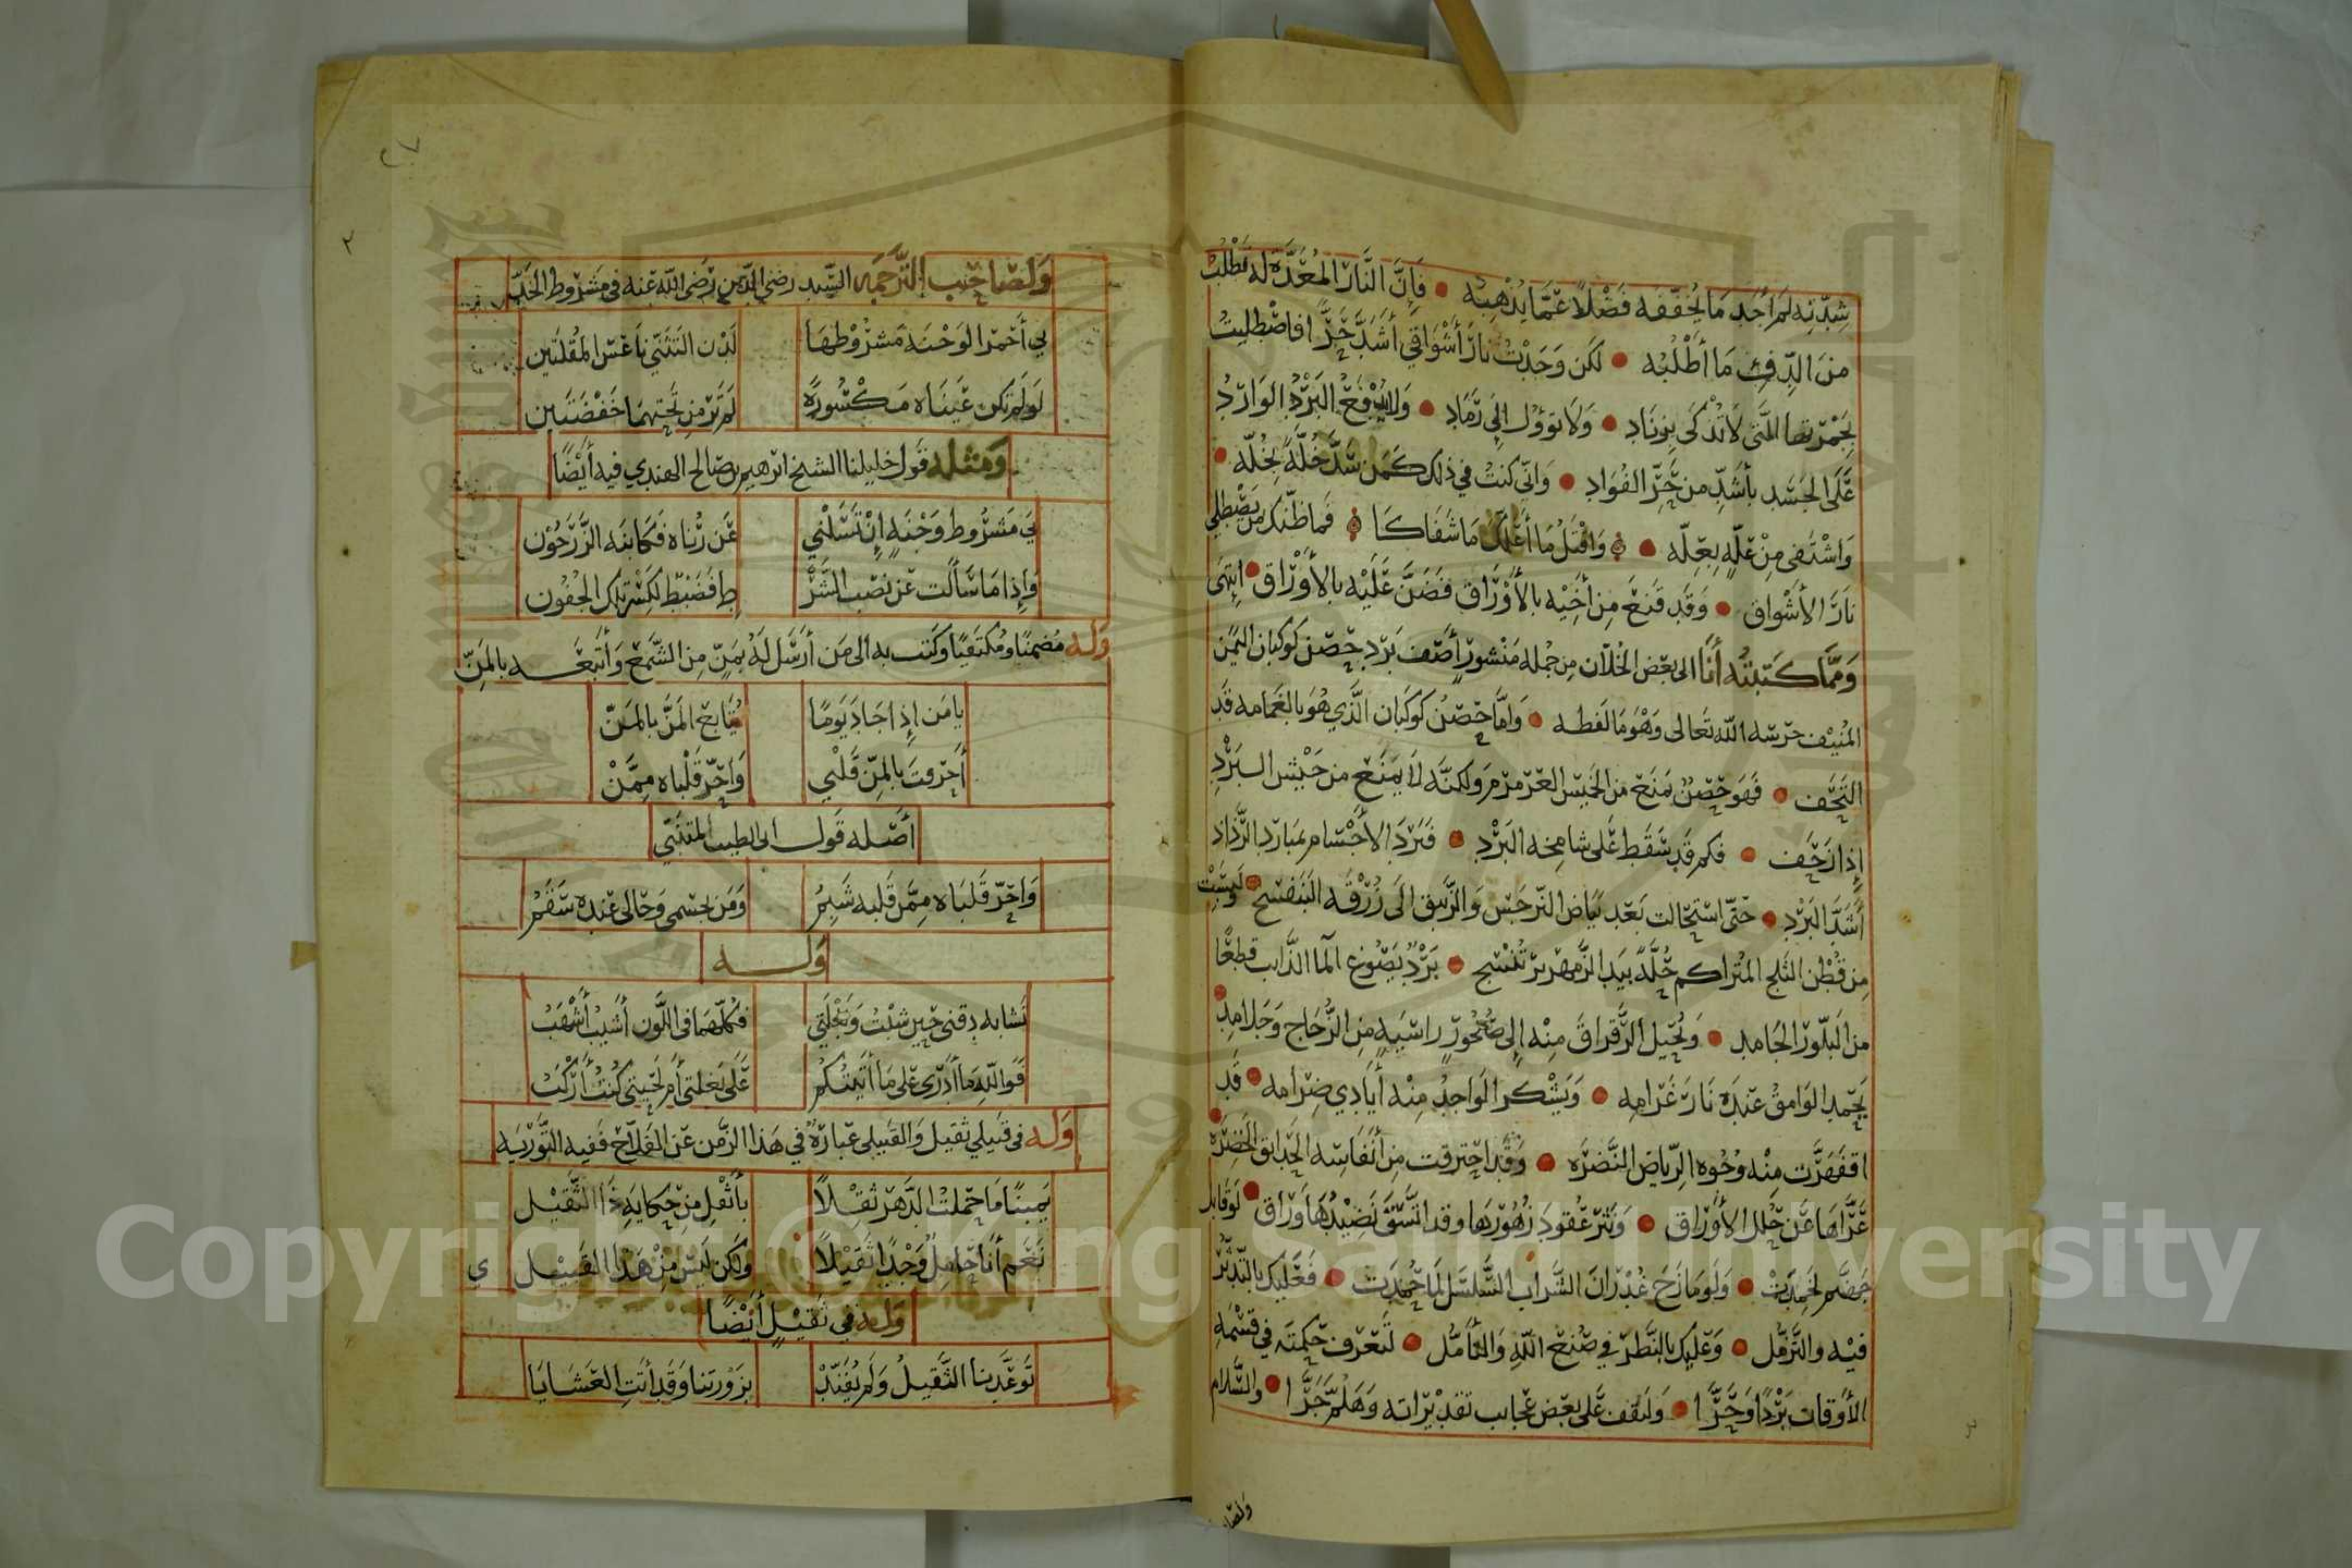 شِدّتِه لم أجد ما يُخففه فضلاً عمّا يُذهبه • فإنّ النّار المُعدّة له تطلب
من الدّفئ ما أطلُبُه • لكن وَجَدْتُ نارَ أشواقي أشدّ حَرًّا فاصطليتُ
بجمرتها التي لا تُذكى بزناد • ولا تؤول إلى رَماد • ولا يُدفع البَرْدُ الوارِدُ
على الجسد بأشدّ من حَرّ الفؤاد • وانّي كنتُ في ذلك كمن سَدّ خُلّةً بخُلّه •
واشتفى مِنْ عَلّهٍ بعِلّه • واقتل ما أعلّك ما شفاكا فما ظنّك بمن يصطلي
نارَ الأشواق • وقد قنع من أخيه بالأوراق فضَنّ عليه بالأوراق • انتهى
وممّا كتبتُه أنا الى بعض الخُلّان من جُملة منشورٍ أصف بَرد حصن كوكبان اليَمَن
المُنيف حرسه الله تعالى وهو ما لفظه • وامّا حصنُ كوكبان الّذي هُوَ بالغمامه قد
التحف • فهو حِصنٌ يمنع من الخَميس العرمرم ولكنّه لا يمنع من جَيْش البَرْدِ
إذا زحف • فكم قد سقط على شامخه البَرْد • فبَرَدَ الأجسام بمبارد الرّذاذ
أشدّ البَرْد • حتّى استحالت بعد بَياض النّرجس والزّنبق الى زُرْقة البَنَفسج • ولبست
من قُطن الثلج المُتراكم حُلّةً بيد الزّمهرير تُنسج • بَرْدٌ يصوغ الما الذّايب قطعًا
من البَلّور الجامد • ويُحيل الرّقراق منه إلى صُخورٍ راسيةٍ من الزُّجاج وجلامد •
يحمد الوامقُ عندَه نارَ غرامِه • ويشكر الواجدُ منه أيادي ضرامه • قد
اقفهَرّت منه وُجوه الرّياض النّضرَه • وقد احترقت من أنفاسه الحدايق الخَضِرَة •
عَرّاها عَن حُلل الأوراق • ونثرَ عُقودَ زهُورها وقد اتّسق نَضيدُها وراق • لو قابل
جهنّم لخمِدَت • ولو مازح غُدرانَ الشّراب السَّلسَل لما حُمِدَت • فعليك بالتّدثُّر
فيه والتّزمُّل • وعليك بالنّظر في صُنع الله والتأمُّل • لتعرف حكمتَه في قسمَهِ
الأوقات بَرْدًا وحَرًّا • ولتقف على بعض عجايب تقديراته وهلُمّ جَرّا • والسّلام
ولصا
٢٧
ولصاحب الترجمه السّيد رضي الدّين رضي الله عنه في مشروط الخدّ
بي أحمر الوجنه مشروطها لدْن التثنّي ناعس المُقلتَين
لو لم تكن عيناه مكسُورةً لم تر من تحتهما خفضتَين
ومثله قول خليلنا الشيخ ابرهيم بن صالح الهندي فيه أيضًا
بي مشروط وجنهٍ إن تسلني عَن رُناه فكابنَه الزَّرَجُون
وإذا ما سألت عن نصب الشَّرْ طِ فضبط لكسر تلك الجفون
وله مُضمنًا ومُكتفيًا وكتب به الى من أرسل له بمَنٍّ من الشّمع وأتبعه بالمنّ
يا مَن إذا جادَ يومًا يُتابع المَنَّ بالمَنّ
أحرقتَ بالمنّ قلبي واحَرّ قلباه ممّنْ
أصله قول ابى الطيب المتنبّي
واحَرّ قلباه ممّن قلبه شَبِمُ ومن بجسمي وحالي عنده سَقَمُ
وله
تشابه دقني حين شبْتُ وبَغْلَتي فكلّهما في اللّون أشيبُ أشهَبُ
فوالله ما أدري على ما أتيتُكم على بَغلتي أم لحيتي كنتُ أركَبُ
وله في قَبيلي ثقيل والقَبيلي عبارَةٌ في هذا الزّمن عن الفلّاح ففيه التّوريه
يمينًا ما حملتُ الدّهر ثِقلاً بأثقل من حكايةِ ذا الثّقيل
نعم أنا حاملٌ وَجْدًا ثقيلاً ولكن ليس من هَذا القَبيل ي
وله في ثقيلٍ أيضًا
توعّدنا الثّقيلُ ولم يُفنّدْ بزَورتنا وقد أتتِ العشايا
Copyright © King Saud University